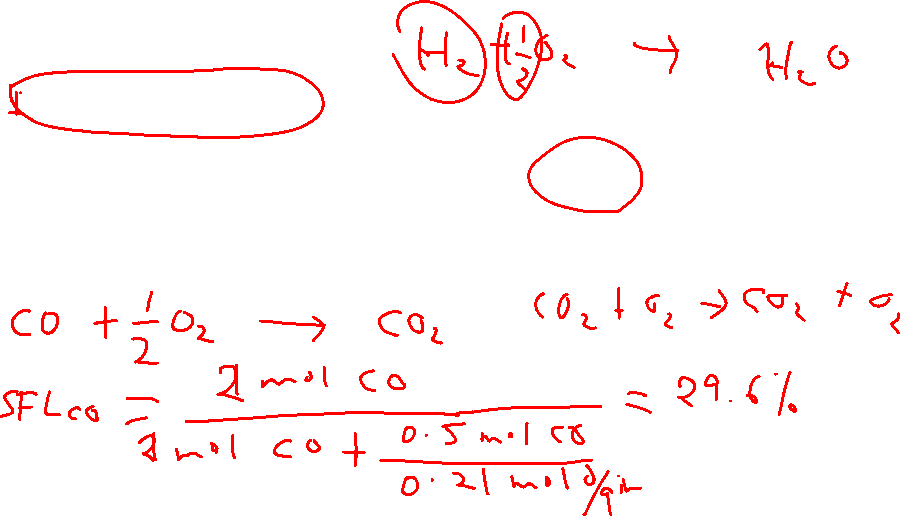 H₂ + 1/2 O₂ → H₂O
CO + 1/2 O₂ → CO₂
CO₂ + O₂ → CO₂ + O₂
SFL_CO = 1 mol CO / (1 mol CO + 0.5 mol CO / 0.21 mol O/air) = 29.6%